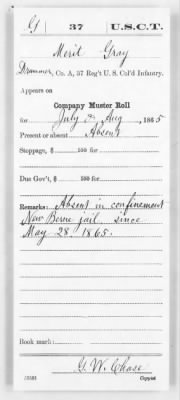 G | 37 | U.S.C.T.
Merit Gray
Drummer, Co. A, 37 Reg't U. S. Col'd Infantry.
Appears on
Company Muster Roll
for July & Aug, 1865
Present or absent Absent
Stoppage, $ 100 for
Due Gov't, $ 100 for
Remarks: Absent in confinement
New Berne jail since
May 28, 1865.
Book mark:
G. W. Chase
Copyist.